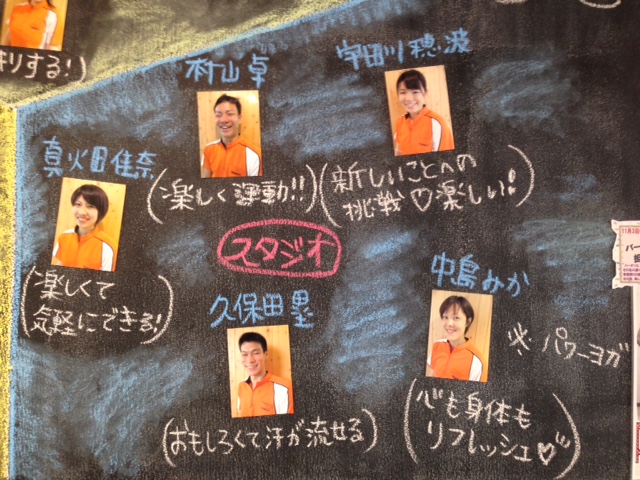 キリする!)
村山 卓
(楽しく運動!!)
宇田川 穂波
(新しいことへの
挑戦♡楽しい!)
真火田佳奈
(楽しくて
気軽にできる!)
スタジオ
久保田 塁
(おもしろくて汗が流せる)
中島みか
パワーヨガ
(心も身体も
リフレッシュ♡)